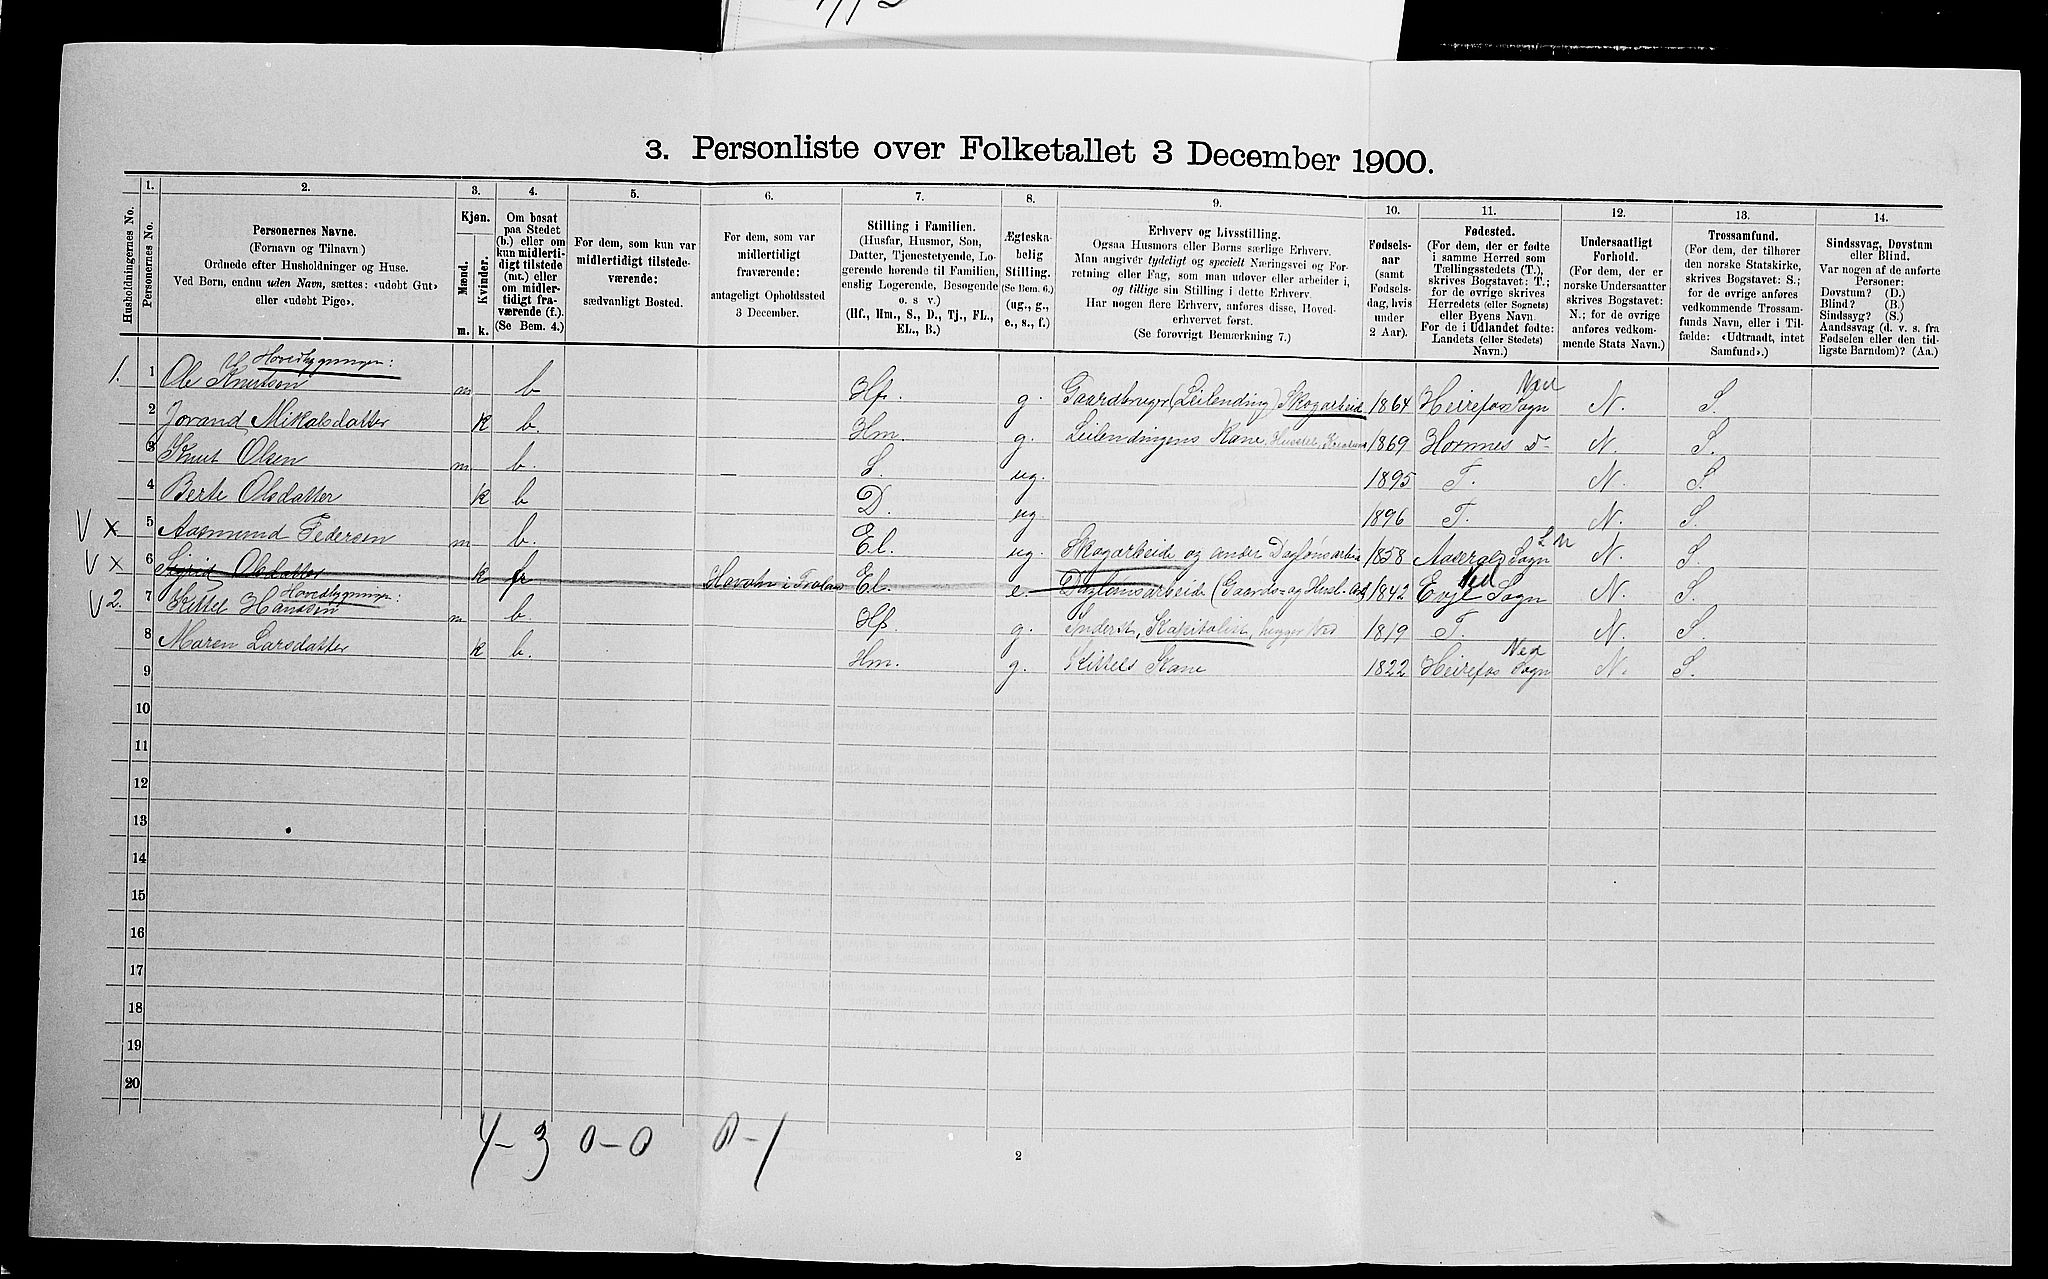 3. Personliste over Folketallet 3 December 1900.
Husholdningernes No.
1. Personernes No.
2. Personernes Navne.
(Fornavn og Tilnavn.)
Ordnede efter Husholdninger og Huse.
Ved Børn, endnu uden Navn, sættes: «udøbt Gut»
eller «udøbt Pige».
3. Kjøn.
Mænd. Kvinder.
m. k.
4. Om bosat
paa Stedet
(b.) eller om
kun midlerti-
digt tilstede
(mt.) eller
om midler-
tidigt fra-
værende (f.).
(Se Bem. 4.)
5. For dem, som kun var
midlertidigt tilstede-
værende:
sædvanligt Bosted.
6. For dem, som var
midlertidigt
fraværende:
antageligt Opholdssted
3 December.
7. Stilling i Familien.
(Husfar, Husmor, Søn,
Datter, Tjenestetyende, Lo-
gerende hørende til Familien,
enslig Logerende, Besøgende
o. s v.)
(Hf., Hm., S., D., Tj., FL.,
EL., B.)
8. Ægteska-
belig
Stilling.
(Se Bem. 6.)
(ug., g.,
e., s., f.)
9. Erhverv og Livsstilling.
Ogsaa Husmors eller Børns særlige Erhverv.
Man angivër tydeligt og specielt Næringsvei og For-
retning eller Fag, som man udøver eller arbeider i,
og tillige sin Stilling i dette Erhverv.
Har nogen flere Erhverv, anføres disse, Hoved-
erhvervet først.
(Se forøvrigt Bemærkning 7.)
10. Fødsels-
aar
(samt
Fødsels-
dag, hvis
under
2 Aar).
11. Fødested.
(For dem, der er fødte
i samme Herred som
Tællingsstedets (T.),
skrives Bogstavet: T.;
for de øvrige skrives
Herredets (eller Sognets)
eller Byens Navn.
For de i Udlandet fødte:
Landets (eller Stedets)
Navn.)
12. Undersaatligt
Forhold.
(For dem, der er
norske Undersaatter
skrives Bogstavet:
N.; for de øvrige
anføres vedkom-
mende Stats Navn.)
13. Trossamfund.
(For dem, der tilhører
den norske Statskirke,
skrives Bogstavet: S.;
for de øvrige anføres
vedkommende Trossam-
funds Navn, eller i Til-
fælde: «Udtraadt, intet
Samfund».)
14. Sindssvag, Døvstum
eller Blind.
Var nogen af de anførte
Personer:
Døvstum? (D.)
Blind? (B.)
Sindssyg? (S.)
Aandssvag (d. v. s. fra
Fødselen eller den tid-
ligste Barndom)? (Aa.)
Hovedbygningen:
1. 1 Ole Knutson m b Hf. g. Gaardbruger (Leilending) Skogarbeid 1864 Heirefos Sogn N. S.
2 Jorand Mikalsdatter k b. Hm. g. Leilendingens Kone, Husstel, Kreaturst 1869 Hornnes N. S.
3 Knut Olsen m b. S. ug. 1895 T. N. S.
4 Berte Olsdatter k b D. ug 1896 T. N. S.
V x 5 Aasmund Pedersen m b. El. ug. Skogarbeide og andet Daglønsarbei 1858 Aaseral Sogn N. S.
V x 6 Sigrid Olsdatter k fr El. e Daglønsarbeide (Gaards- og Husl. Arb) 1842 Evje Sogn N. S.
Hovedbygningen:
V 2. 7 Kittel Hansen m b. Hf. g. Inderst, Kapitalist, hugger Ved 1819 T. N. S.
8 Maren Larsdatter k b. Hm. g. Kittels Kone 1822 Heirefos Sogn N. S.
9
10
11
12
13
14
15
16
17
18
19
20
4-3 0-0 0-1
2